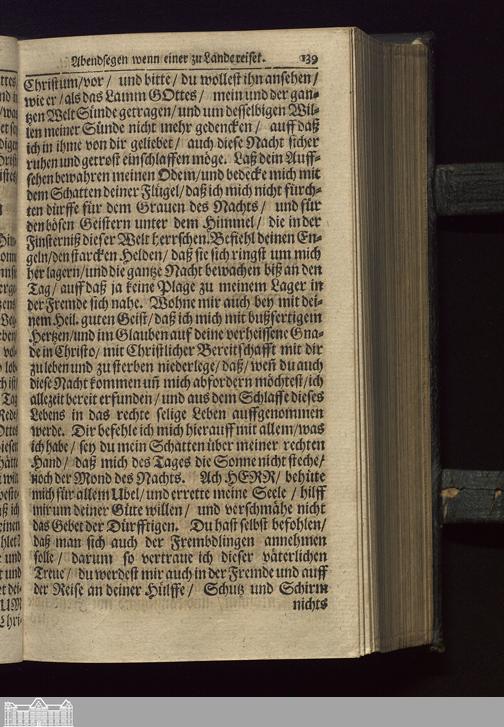 Abendsegen wenn einer zu Lande reiset. 139
Christum/vor / und bitte/ du wollest ihn ansehen/
wie er/ als das Lamm GOttes / mein und der gan-
tzen Welt Sünde getragen/ und um desselbigen Wil-
len meiner Sünde nicht mehr gedencken / auff daß
ich in ihme von dir geliebet/ auch diese Nacht sicher
ruhen und getrost einschlaffen möge. Laß dein Auff-
sehen bewahren meinen Odem/und bedecke mich mit
dem Schatten deiner Flügel/daß ich mich nicht fürch-
ten dürffe für dem Grauen des Nachts/ und für
den bösen Geistern unter dem Himmel/ die in der
Finsterniß dieser Welt herrschen. Befiehl deinen En-
geln/den starcken Helden/ daß sie sich ringst um mich
her lagern/und die gantze Nacht bewachen biß an den
Tag/ auff daß ja keine Plage zu meinem Lager in
der Fremde sich nahe. Wohne mir auch bey mit dei-
nem Heil. guten Geist/daß ich mich mit bußfertigem
Hertzen/und im Glauben auf deine verheissene Gna-
de in Christo/ mit Christlicher Bereitschafft mit dir
zu leben und zu sterben niederlege/ daß/ weñ du auch
diese Nacht kommen uñ mich abfordern möchtest/ich
allezeit bereit erfunden/ und aus dem Schlaffe dieses
Lebens in das rechte selige Leben auffgenommen
werde. Dir befehle ich mich hierauff mit allem/was
ich habe/ sey du mein Schatten über meiner rechten
Hand/ daß mich des Tages die Sonne nicht steche/
noch der Mond des Nachts. Ach HERR/ behüte
mich für allem Ubel/und errette meine Seele / hilff
mir um deiner Güte willen/ und verschmähe nicht
das Gebet der Dürfftigen. Du hast selbst befohlen/
daß man sich auch der Frembdlingen annehmen
solle/ darum so vertraue ich dieser väterlichen
Treue/ du werdest mir auch in der Fremde und auff
der Reise an deiner Hülffe/ Schutz und Schirm
nichts